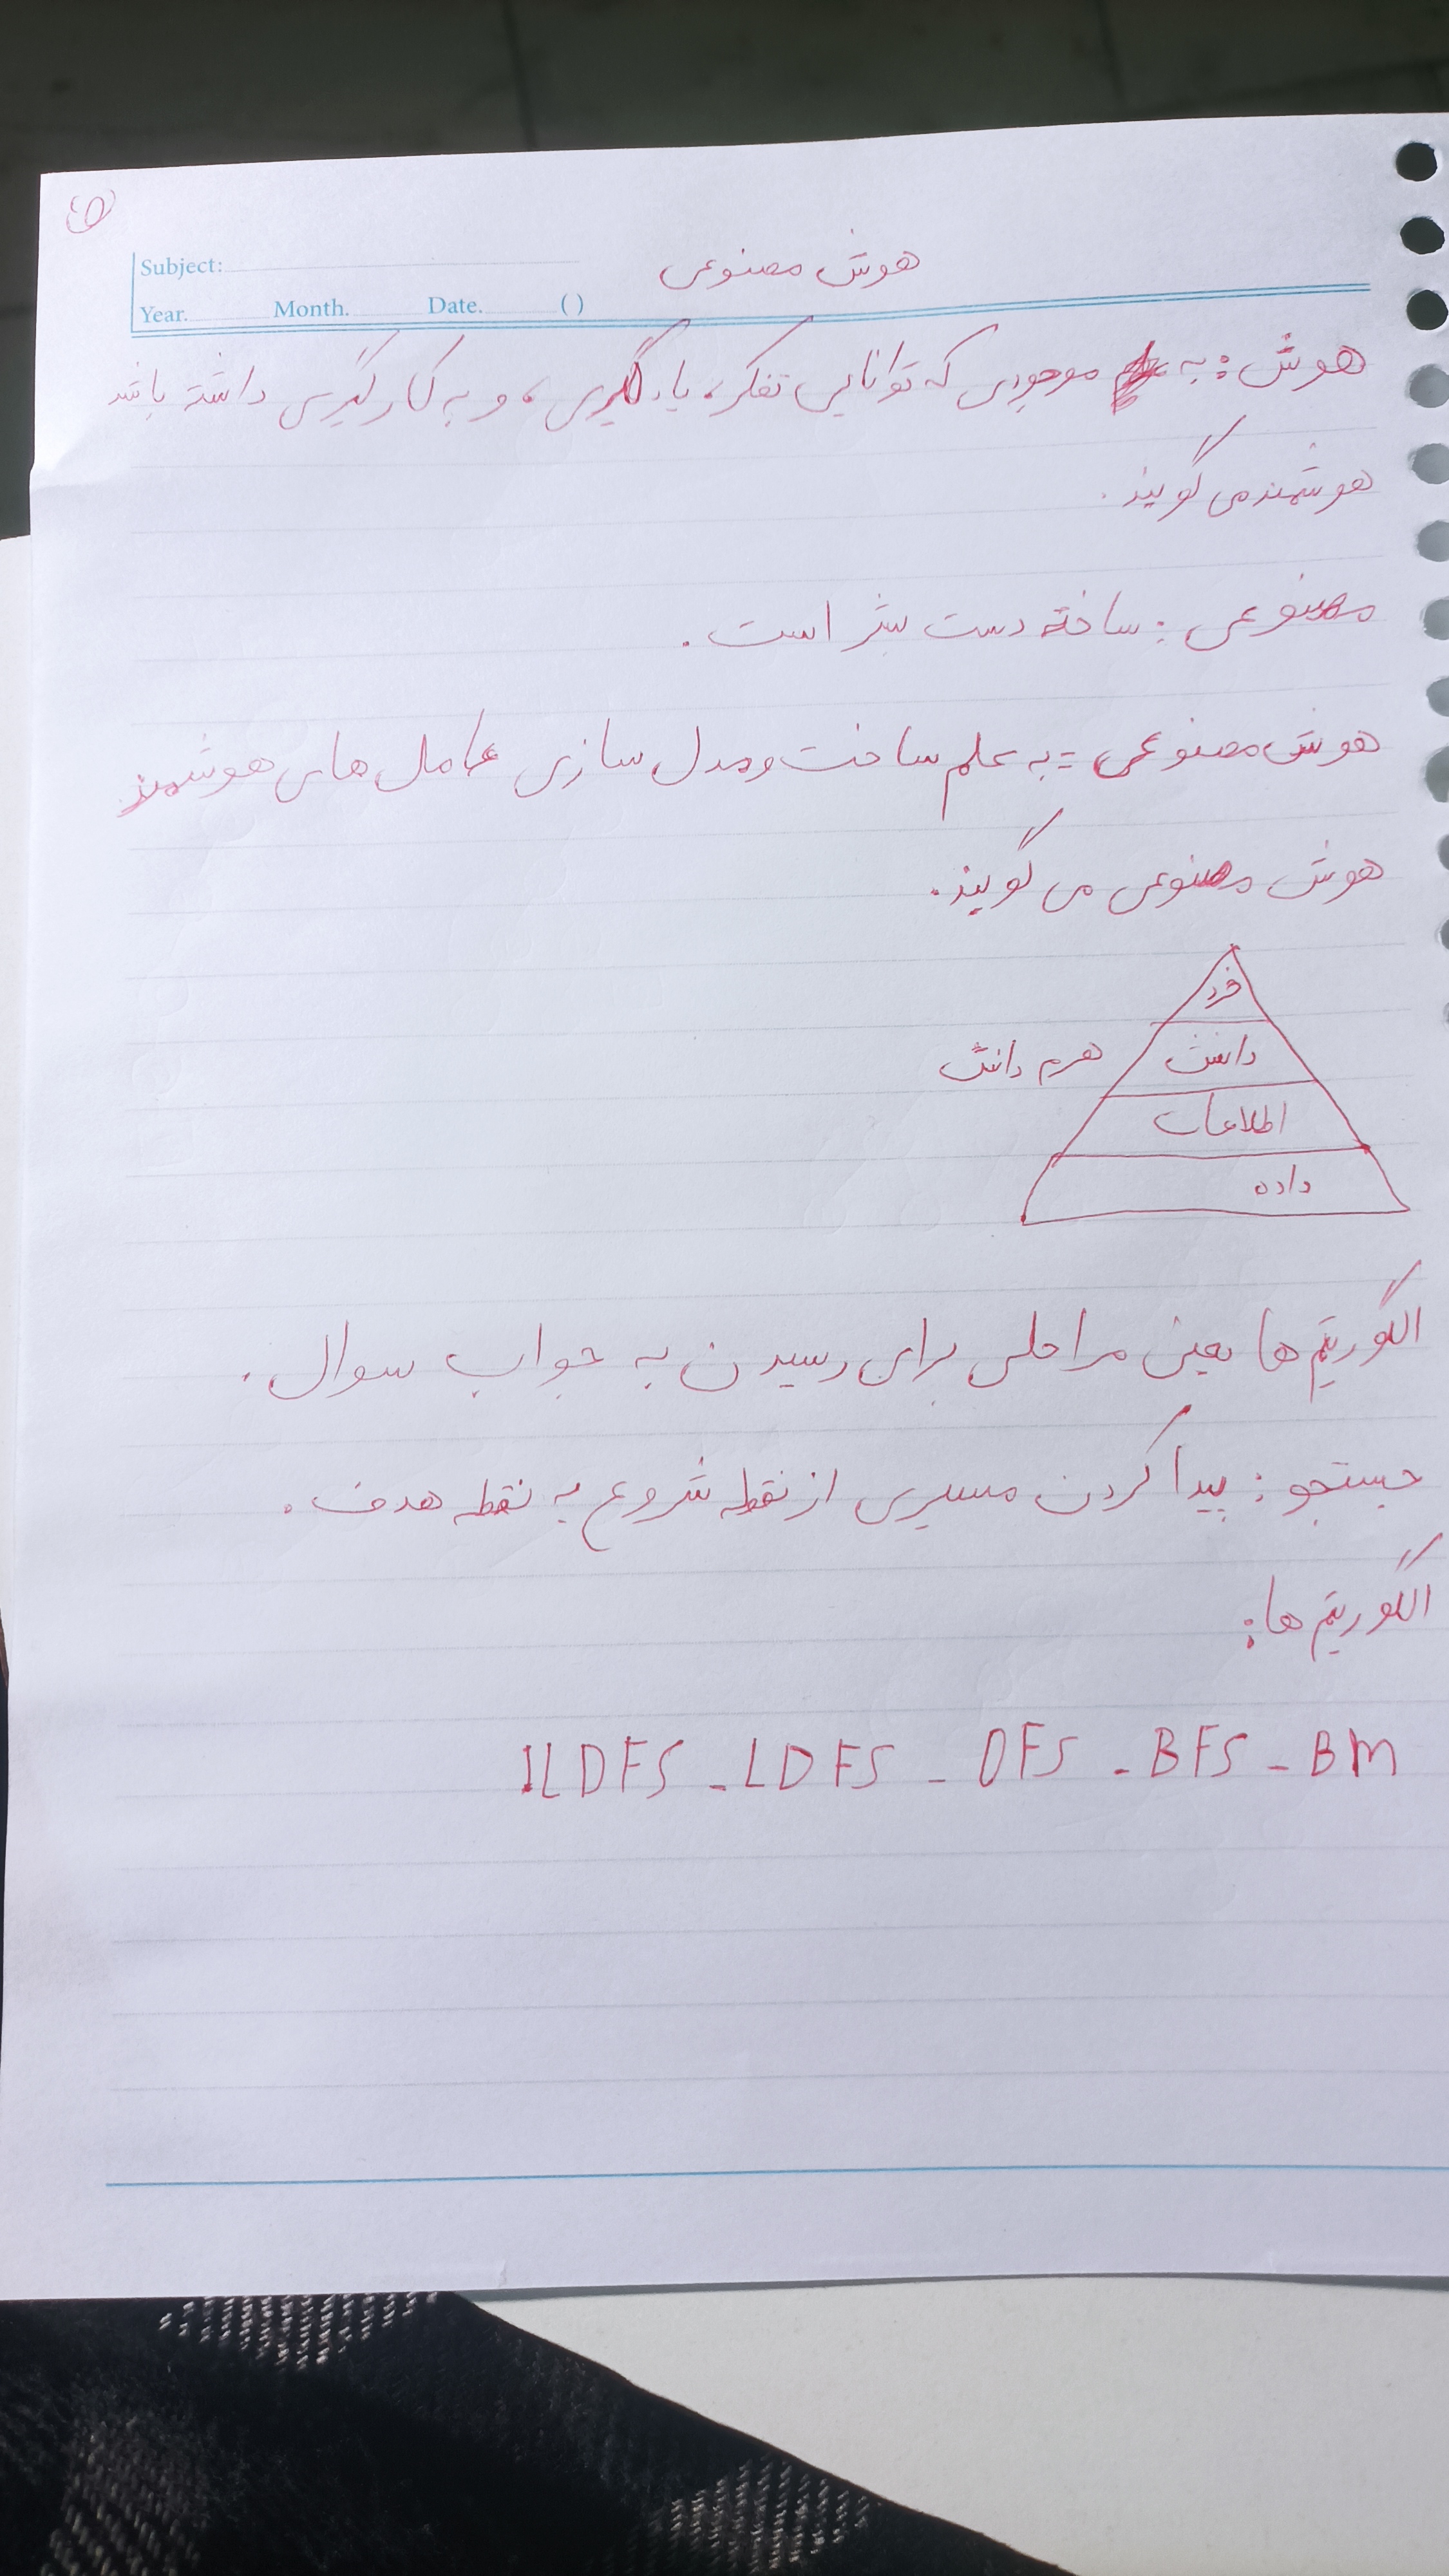 هوش مصنوعی
Subject:
Year. Month. Date. ( )
هوش : به موجودی که توانایی تفکر، یادگیری، و به کارگیری داشته باشد
هوشمند می گویند.
مصنوعی : ساخته دست بشر است .
هوش مصنوعی = به علم ساخت و مدل سازی عامل های هوشمند
هوش مصنوعی می گویند.
خرد
دانش
هرم دانش
اطلاعات
داده
الگوریتم ها یعنی مراحلی برای رسیدن به جواب سوال .
جستجو : پیدا کردن مسیری از نقطه شروع به نقطه هدف .
الگوریتم ها :
ILDFS - LDFS - DFS - BFS - BM